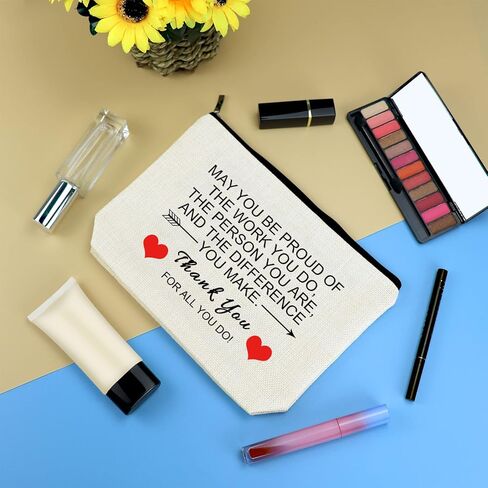 MAY YOU BE PROUD OF
THE WORK YOU DO,
THE PERSON YOU ARE,
AND THE DIFFERENCE
YOU MAKE.
Thank You
FOR ALL YOU DO!